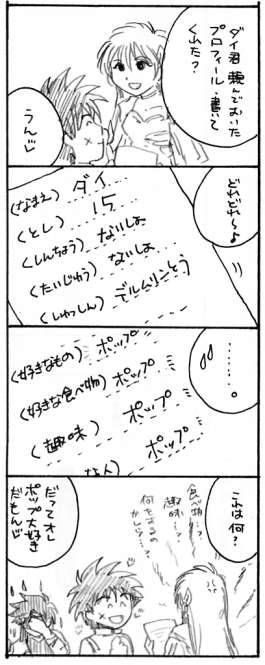 ダイ君頼んでおいた
プロフィール書いて
くれた?
うんッ
どれどれ〜♪
(なまえ) ダイ
(とし) 15
(しんちょう) ないしょ
(たいじゅう) ないしょ
(しゅっしん) デルムリンとう
………。
(好きなもの) ポップ
(好きな食べ物) ポップ
(趣味) ポップ
ポップ
これは何?
食べ物…?
趣味…?
何をするの
かしら…?
だってオレ
ポップ大好き
だもんッ